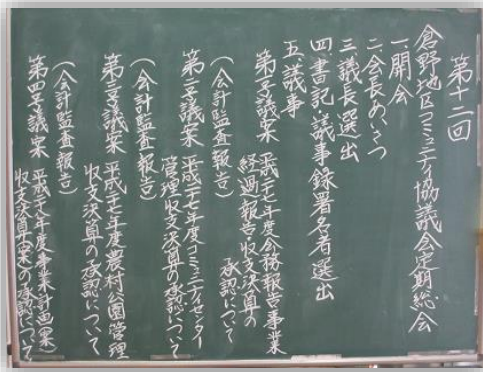 第十二回
倉野地区コミュニティ協議会定期総会
一、開会
二、会長あいさつ
三、議長選出
四、書記・議事録署名者選出
五、議事
第一号議案 平成二十七年度会務報告事業
経過報告収支決算の
承認について
(会計監査報告)
第二号議案 平成二十七年度コミュニティセンター
管理収支決算の承認について
(会計監査報告)
第三号議案 平成二十七年度農村公園管理
収支決算の承認について
(会計監査報告)
第四号議案 平成二十八年度事業計画(案)
収支予算(案)の承認について